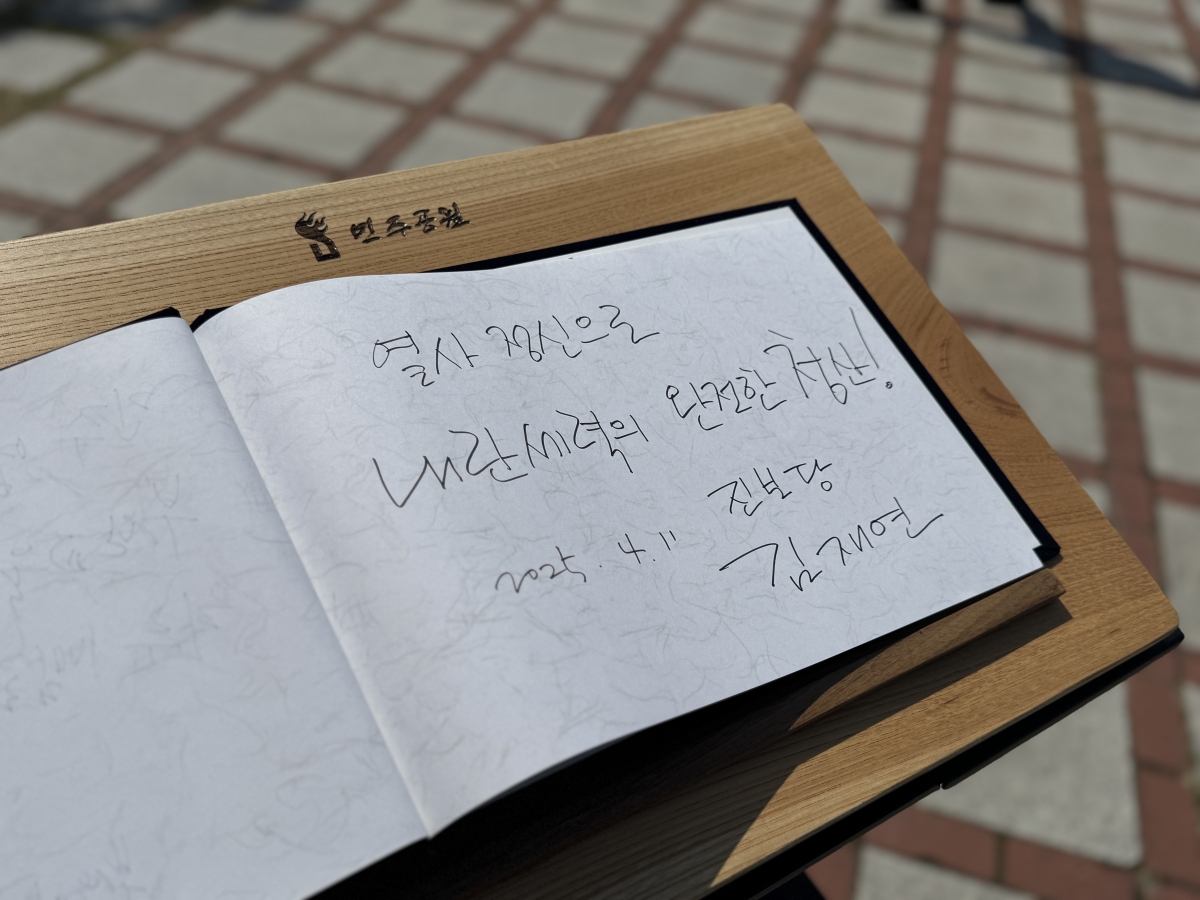 민주공원
열사 정신으로
내란세력의 완전한 청산!
진보당
2025. 4. 11 김재연